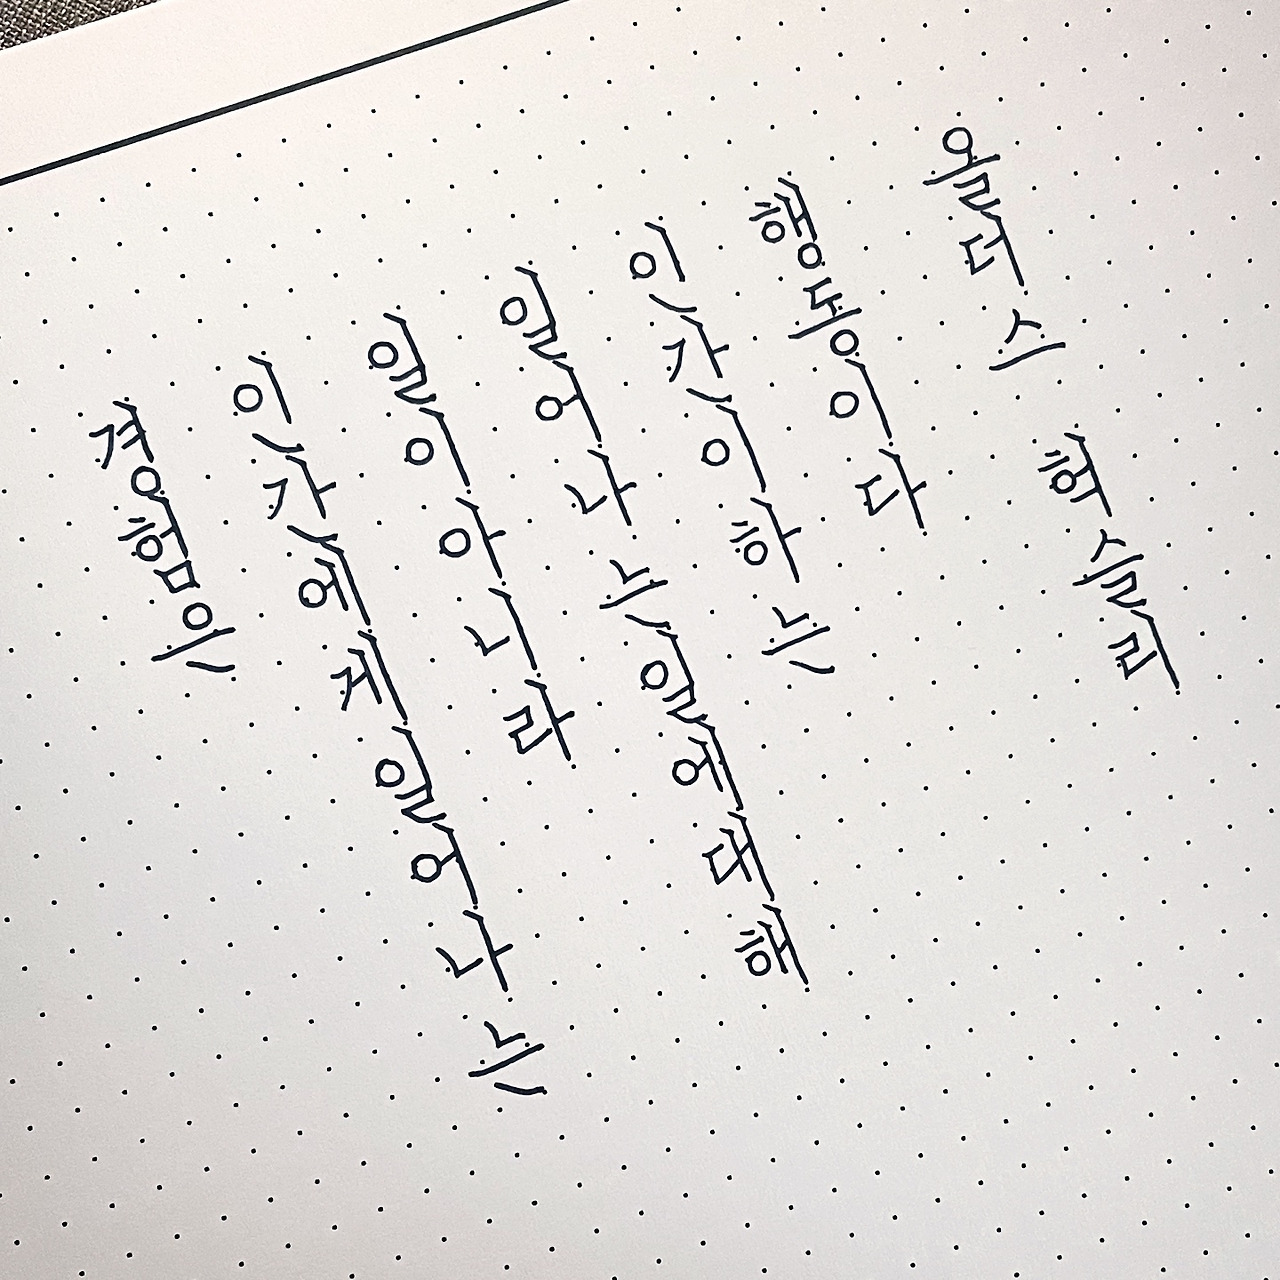 경험은
인간에게 일어나는
일이 아니라
일어나는 일에 대해
인간이 하는
행동이다
올더스 허슬리